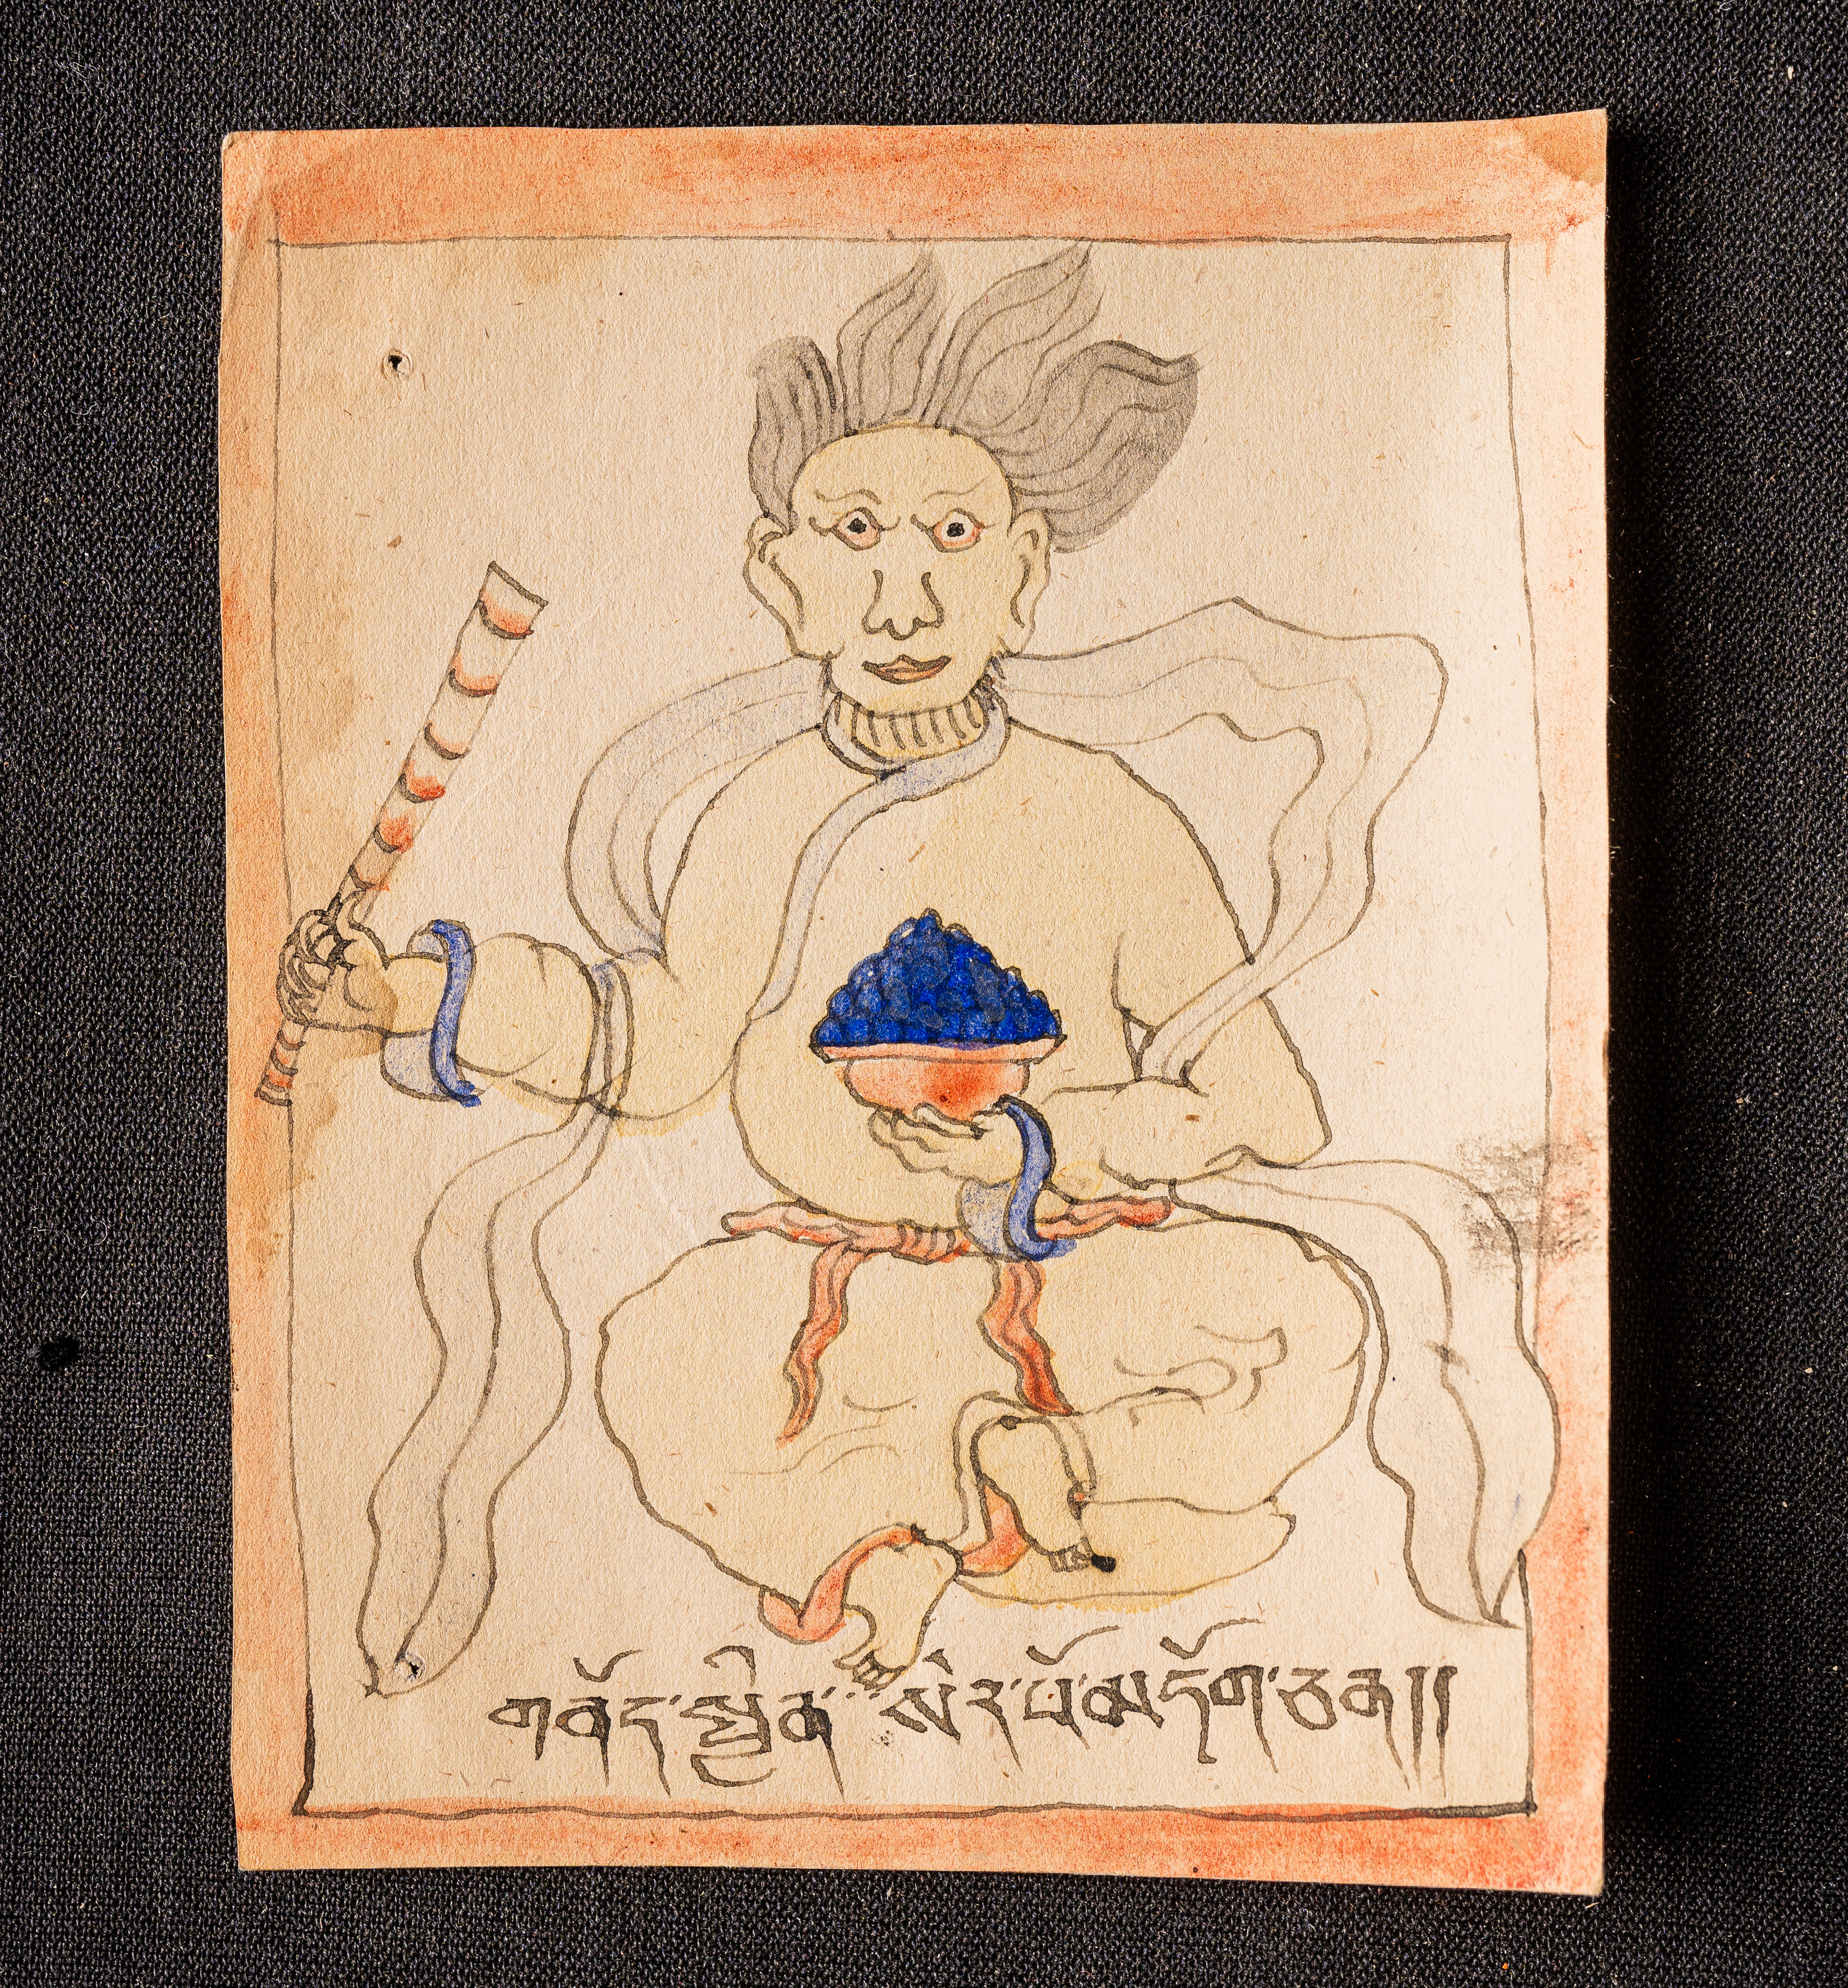 གནོད་སྦྱིན་སེར་པོ་མདོག་ཅན།།